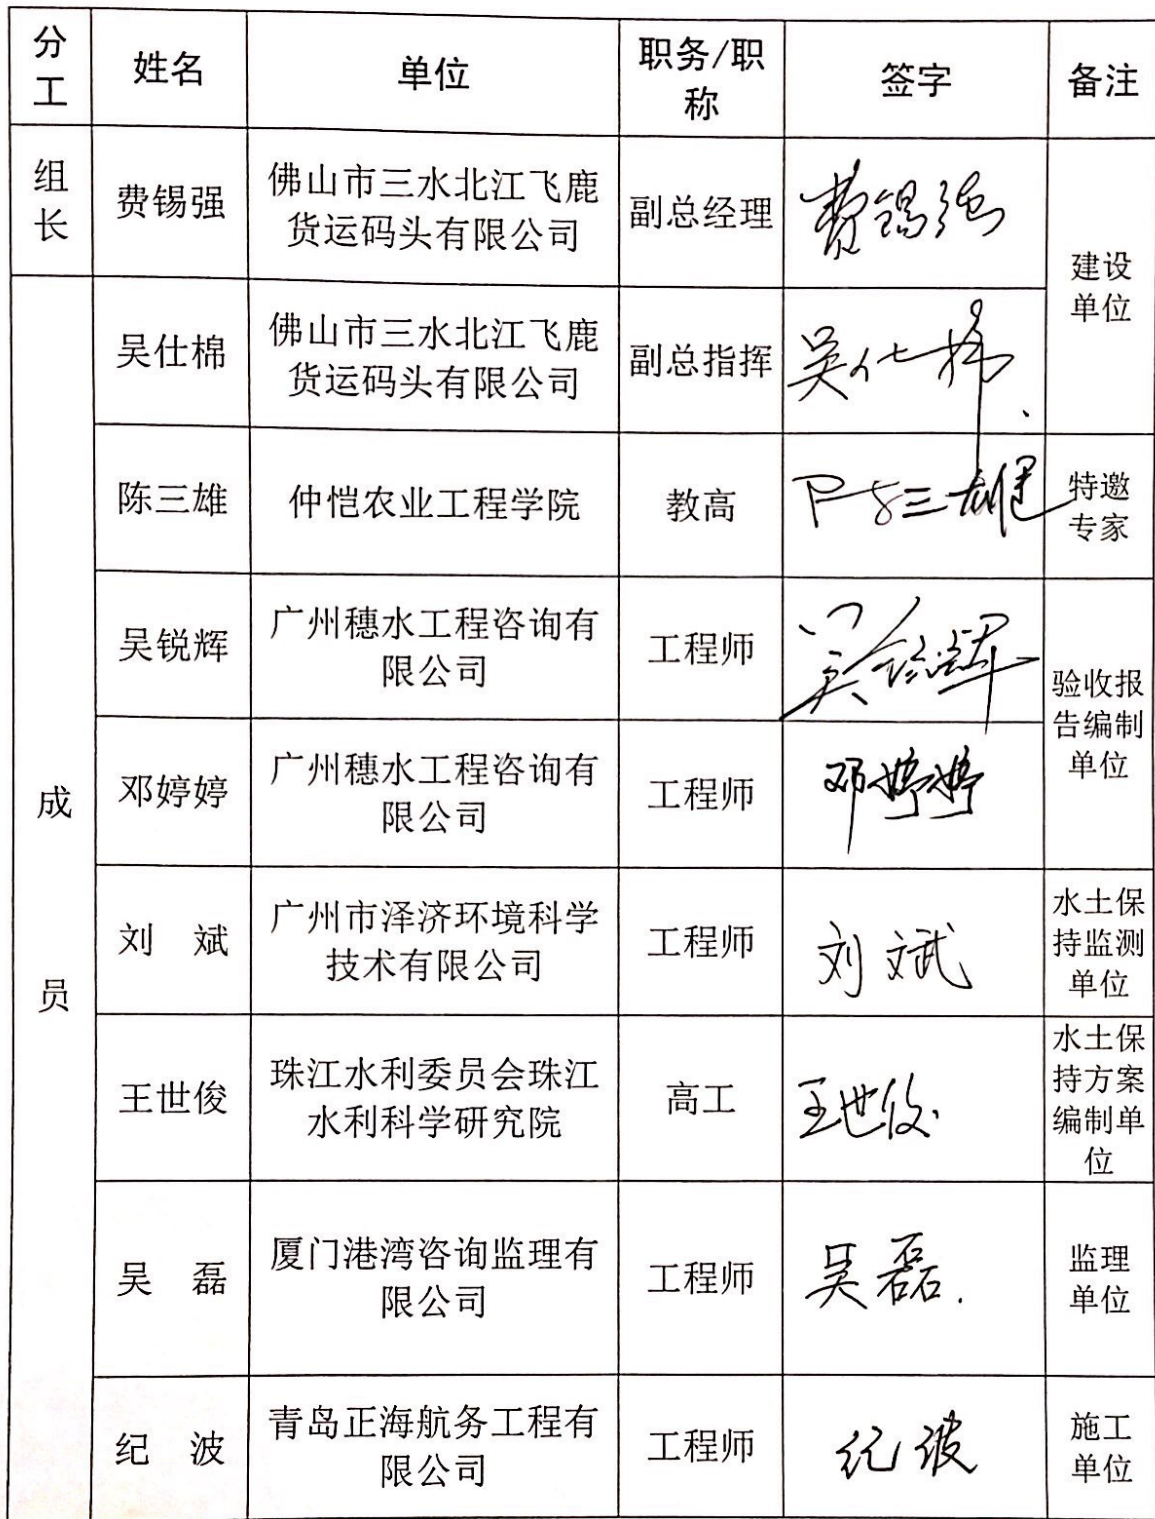 分工 姓名 单位 职务/职称 签字 备注
组长 费锡强 佛山市三水北江飞鹿货运码头有限公司 副总经理 费锡强 建设单位
成员 吴仕棉 佛山市三水北江飞鹿货运码头有限公司 副总指挥 吴仕棉
陈三雄 仲恺农业工程学院 教高 陈三雄 特邀专家
吴锐辉 广州穗水工程咨询有限公司 工程师 吴锐辉 验收报告编制单位
邓婷婷 广州穗水工程咨询有限公司 工程师 邓婷婷
刘 斌 广州市泽济环境科学技术有限公司 工程师 刘斌 水土保持监测单位
王世俊 珠江水利委员会珠江水利科学研究院 高工 王世俊 水土保持方案编制单位
吴 磊 厦门港湾咨询监理有限公司 工程师 吴磊. 监理单位
纪 波 青岛正海航务工程有限公司 工程师 纪波 施工单位